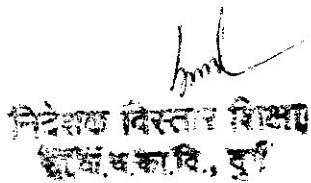 निदेशक विस्तार शिक्षा
का.वि., दुर्ग